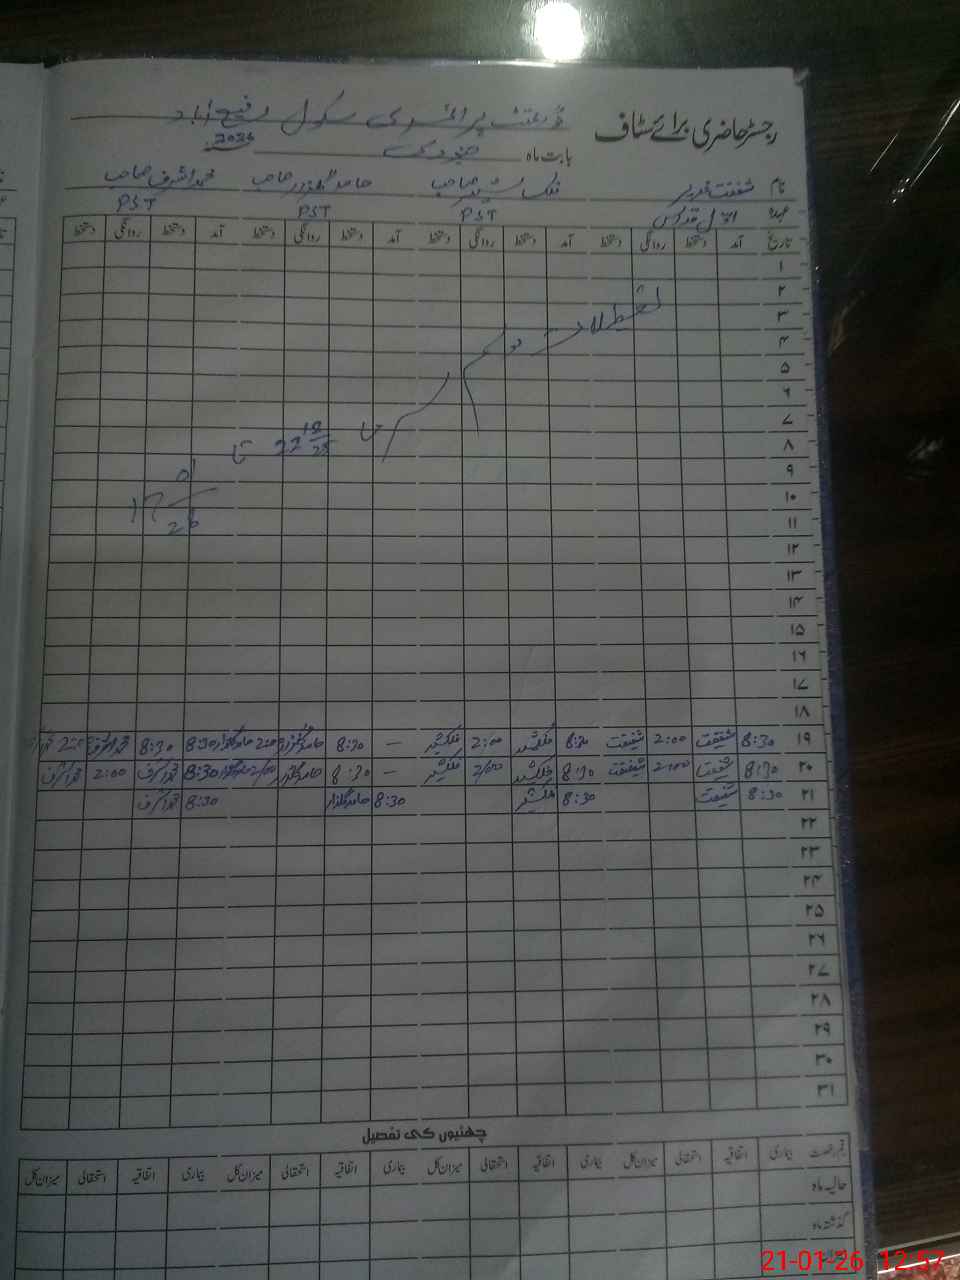 رجسٹر حاضری برائے سٹاف گورنمنٹ پرائمری سکول رفیع آباد
بابت ماہ جنوری 2026
نام شفقت فلک شیر صاحب حامد گلزار صاحب محمد اشرف صاحب
عہدہ PST PST PST
تاریخ آمد دستخط روانگی دستخط آمد دستخط روانگی دستخط آمد دستخط روانگی دستخط آمد دستخط روانگی دستخط
۱
۲
۳
۴
۵
۶
۷
۸
۹
۱۰
۱۱
۱۲
۱۳
۱۴
۱۵
۱۶
۱۷
۱۸
تعطیلات موسم سرما 22 12/25 تا
17 01/26
۱۹ 8:30 شفقت 2:00 شفقت 8:30 فلک شیر 2:00 فلک شیر — 8:30 حامد گلزار 2:00 حامد گلزار 8:30 محمد اشرف 8:30 محمد اشرف 2:00
۲۰ 8:30 شفقت 2:00 شفقت 8:30 فلک شیر 2:00 فلک شیر — 8:30 حامد گلزار 2:00 حامد گلزار 8:30 محمد اشرف 2:00 محمد اشرف
۲۱ 8:30 شفقت 8:30 فلک شیر 8:30 حامد گلزار 8:30 محمد اشرف
۲۲
۲۳
۲۴
۲۵
۲۶
۲۷
۲۸
۲۹
۳۰
۳۱
چھٹیوں کی تفصیل
قسم رخصت بیماری اتفاقیہ استحقاقی میزان کل بیماری اتفاقیہ استحقاقی میزان کل بیماری اتفاقیہ استحقاقی میزان کل بیماری اتفاقیہ استحقاقی میزان کل
حالیہ ماہ
گذشتہ ماہ
21-01-26 12:57